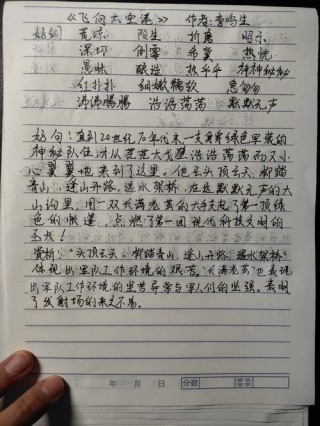 《飞向太空港》 作者:李鸣生
好词 荒凉 陌生 折磨 昭示
深切 倒霉 希望 热忱
愚昧 酿造 热乎乎 神神秘秘
红扑扑 细嫩嫩软 急匆匆
沸沸腾腾 浩浩荡荡 默默无声
好句:直到20世纪70年代末一支身穿绿色军装的
神秘队伍才从茫茫大戈壁浩浩荡荡而又小
心翼翼地来到了这里。他们头顶云天,脚踏
青山,逢山开路,遇水架桥,在这默默无声的大
山沟里,用一双长满老茧的大手支起了第一顶绿
色的帐篷,点燃了第一团现代科技文明的
圣火!
赏析:“头顶云天,脚踏青山,逢山开路,遇水架桥”
体现出军队工作环境的艰苦。“长满老茧”也表现
出军队工作环境的艰苦异常与军人们的坚强。表明
了发射场的来之不易。
年 月 日 分数